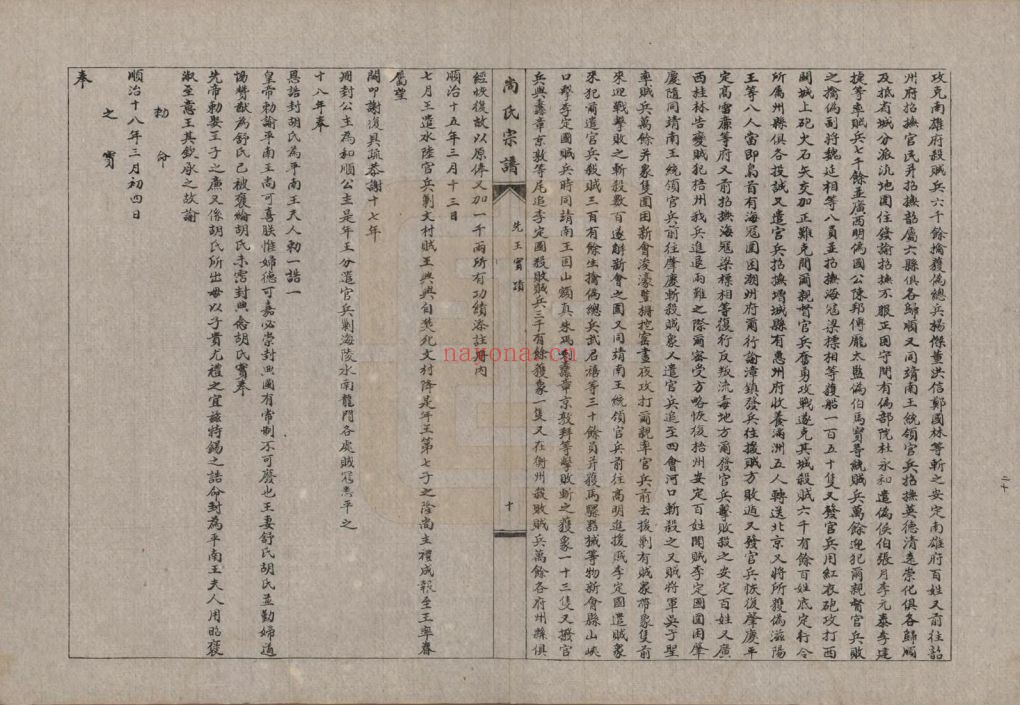 攻克南雄府殺賊兵六千餘擒獲偽總兵楊傑董洪信鄭國林等斬之安定南雄府百姓又前往韶
州府招撫官民并招撫韶屬六縣俱各歸順又同靖南王統領官兵招撫英德清遠崇化俱各歸順
及抵省城分派汛地圍住發諭招撫不服正困守間有偽部院杜永和遣偽侯伯張月李元泰李建
捷等率賊兵七千餘並廣西明偽國公陳邦傅龐太監偽伯馬寶等統賊兵萬餘迎犯爾親督官兵敗
之擒偽副將魏廷相等八員並招撫海冠梁標相等獲船一百五十隻又發官兵用紅衣砲攻打西
關城上砲火石矢交加正難克間爾親督官兵奮勇攻戰遂克其城殺賊六千有餘百姓底定行令
所屬州縣俱各投誠又遣官兵招撫增城縣有惠州府收養滿洲五人轉送北京又將所獲偽滋陽
王等八人當即梟首有海冠圍困潮州府爾行諭漳鎮發兵往援賊方敗遁又發官兵恢復肇慶平
定高雷廉等府又前招撫海冠梁標相等復行反叛流毒地方爾發官兵擊敗殺之安定百姓又廣
西桂林告變賊犯梧州我兵進退兩難之際爾密受方略恢復梧州安定百姓聞賊李定國圍困肇
慶隨同靖南王統領官兵前往肇慶斬殺賊眾又遣官兵追至四會河口斬殺之又賊將軍吳子聖
率賊兵萬餘并象隻圍困新會浚濠豎柵挖窖晝夜攻打爾親率官兵前去援剿有賊眾帶象隻前
來迎戰擊敗之斬殺數百遂解新會之圍又同靖南王統領官兵前往高明進援賊李定國遣賊眾
來犯爾遣官兵殺賊三百有餘生擒偽總兵武君禧等三十餘員并獲馬騾器械等物新會縣山峽
口擊李定國賊兵時同靖南王因山頗真朱瑪喇纛章京敦拜等擊敗斬之獲象一十三隻又撥官
兵與纛章京敦等尾追李定國殺敗賊兵三千有餘獲象一隻又在衡州殺敗賊兵萬餘各府州縣俱
尚氏宗譜
先王實項
十
經恢復故以原俸又加一千兩所有功績添註冊內
順治十五年三月十三日
七月王遣水陸官兵剿文村賊王興興自焚死文村降是年王第七子之隆尚主禮成報至王率眷
屬望
闕叩謝復具疏恭謝十七年
詔封公主為和順公主是年王分遣官兵剿海陵水南龍門各處賊冠悉平之
十八年奉
恩誥封胡氏為平南王夫人勅一誥一
皇帝勅諭平南王尚可喜朕惟婦德可嘉必崇封典國有常制不可廢也王妻舒氏胡氏並勤婦道
協贊猷為舒氏已被褒綸胡氏未霑封典念胡氏實奉
先帝勅娶王子之廉又係胡氏所出母以子貴尤禮之宜茲特錫之誥命封為平南王夫人用昭褒
淑至意王其欽承之故諭
勅命
順治十八年三月初四日
之寶
奉
二十
narona.cn